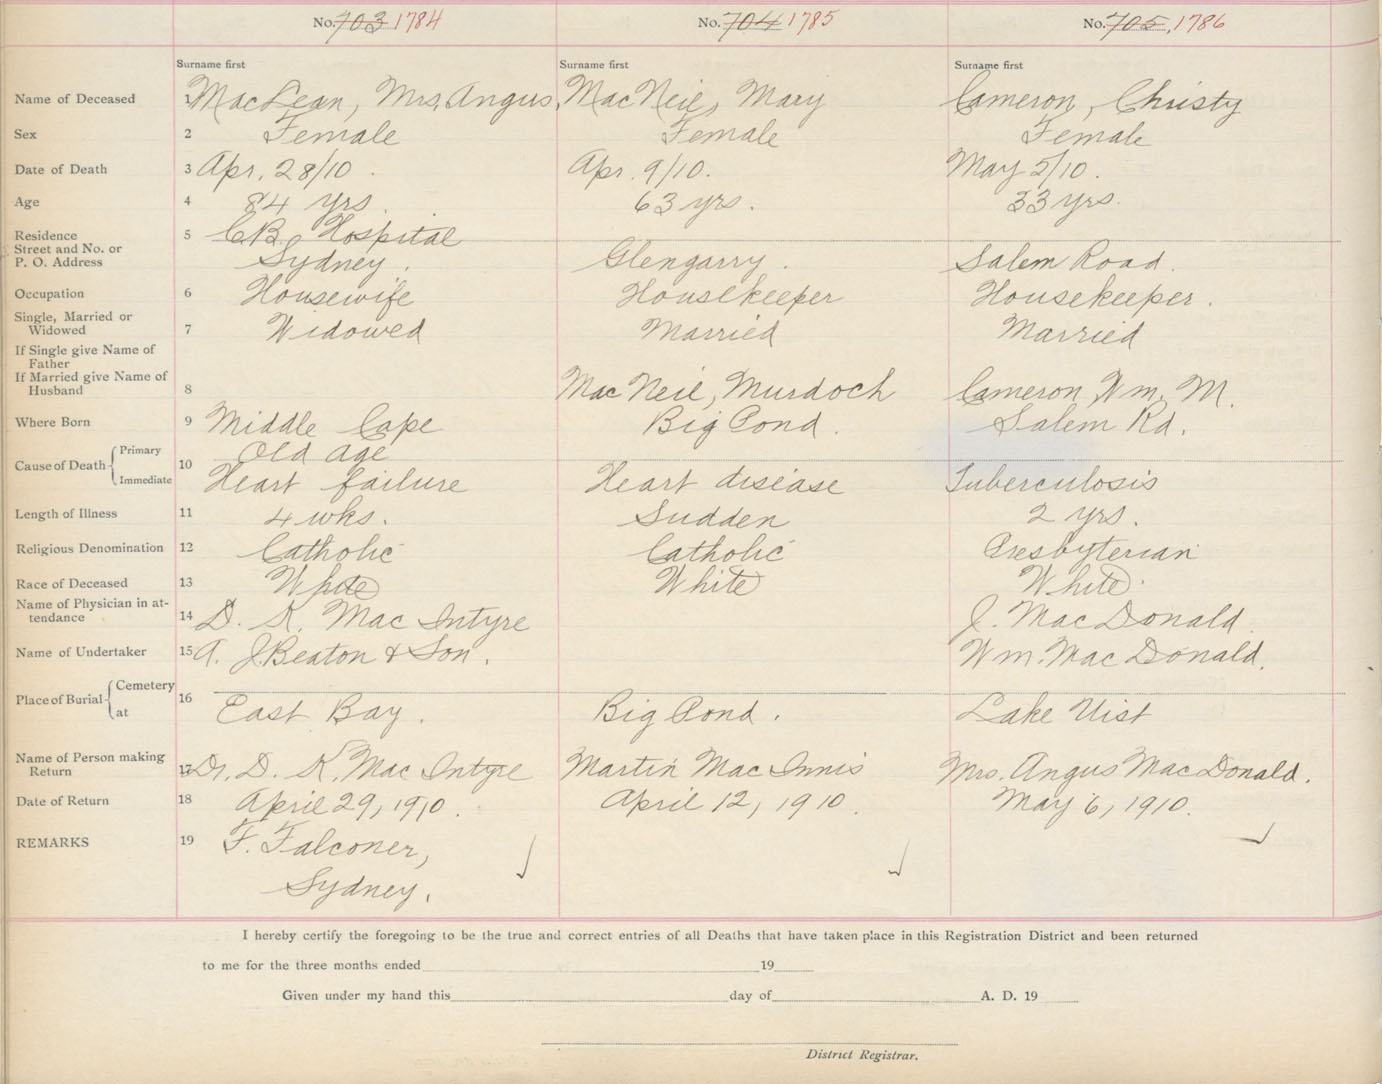 No. 703 1784 No. 704 1785 No. 705, 1786
Surname first Surname first Surname first
Name of Deceased 1 MacLean, Mrs. Angus, MacNeil, Mary Cameron, Christy
Sex 2 Female Female Female
Date of Death 3 Apr. 28/10. Apr. 9/10. May 5/10.
Age 4 84 yrs. 63 yrs. 33 yrs.
Residence 5 C.B. Hospital
Street and No. or
P. O. Address Sydney. Glengarry. Salem Road.
Occupation 6 Housewife Housekeeper Housekeeper.
Single, Married or
Widowed 7 Widowed Married Married
If Single give Name of
Father
If Married give Name of
Husband 8 MacNeil, Murdoch Cameron, Wm. M.
Where Born 9 Middle Cape Big Pond. Salem Rd.
Cause of Death Primary Old Age
10
Immediate Heart failure Heart disease Tuberculosis
Length of Illness 11 4 wks. Sudden 2 yrs.
Religious Denomination 12 Catholic Catholic Presbyterian
Race of Deceased 13 White White White.
Name of Physician in at-
tendance 14 D. K. MacIntyre J. MacDonald
Name of Undertaker 15 A. J. Beaton & Son. Wm. MacDonald.
Place of Burial Cemetery
16
at East Bay. Big Pond. Lake Uist
Name of Person making
Return 17 Dr. D. K. MacIntyre Martin MacInnis Mrs. Angus MacDonald.
Date of Return 18 April 29, 1910. April 12, 1910. May 6, 1910.
REMARKS 19 F. Falconer,
Sydney.
I hereby certify the foregoing to be the true and correct entries of all Deaths that have taken place in this Registration District and been returned
to me for the three months ended 19
Given under my hand this day of A. D. 19
District Registrar.